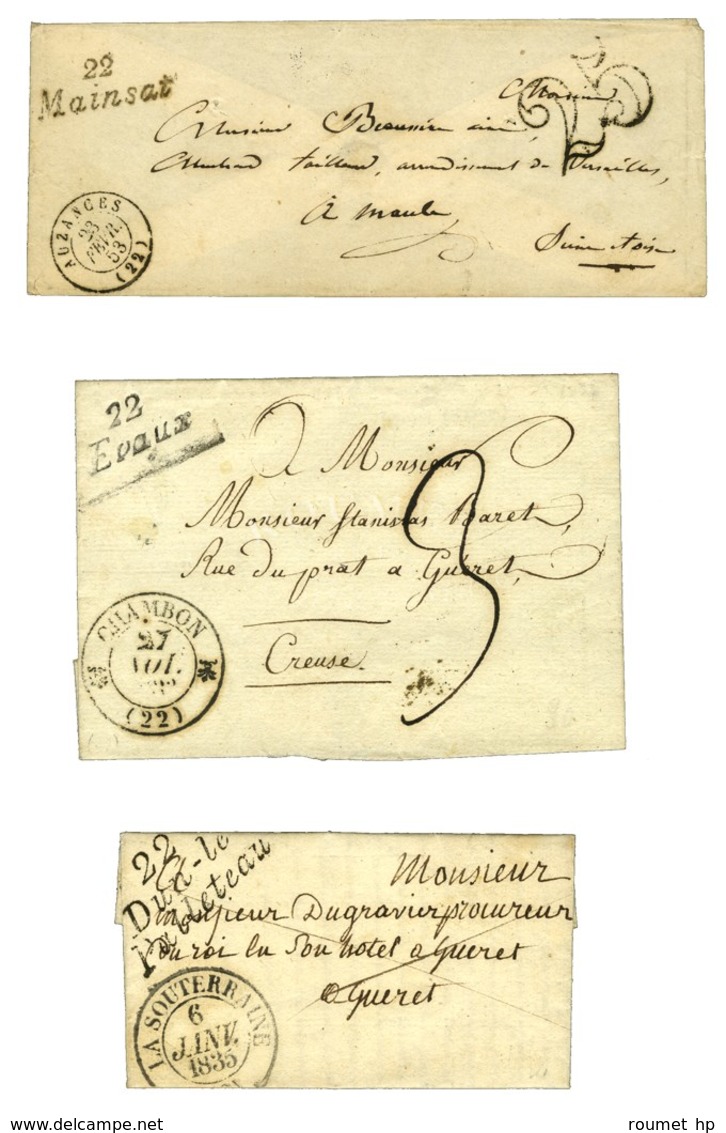 22
Mainsat
25
Monsieur
Monsieur Beaunier ainé,
Marchand tailleur, arrondissement de Versailles,
A Maule,
Seine et oise
AUZANCES
23
FÉVR.
53
(22)
22
Evaux
A Monsieur
Monsieur Stanislas Baret,
Rue du prat a Guéret,
Creuse.
3
CHAMBON
27
NOV.
(22)
22
Dun-le
Palleteau
Monsieur
Monsieur Dugravier procureur
du roi en Son hotel a Gueret
a Gueret
LA SOUTERRAINE
6
JANV.
1835
roumet hp